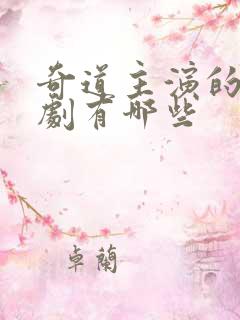 奇道主演的
劇有哪些
卓蘭